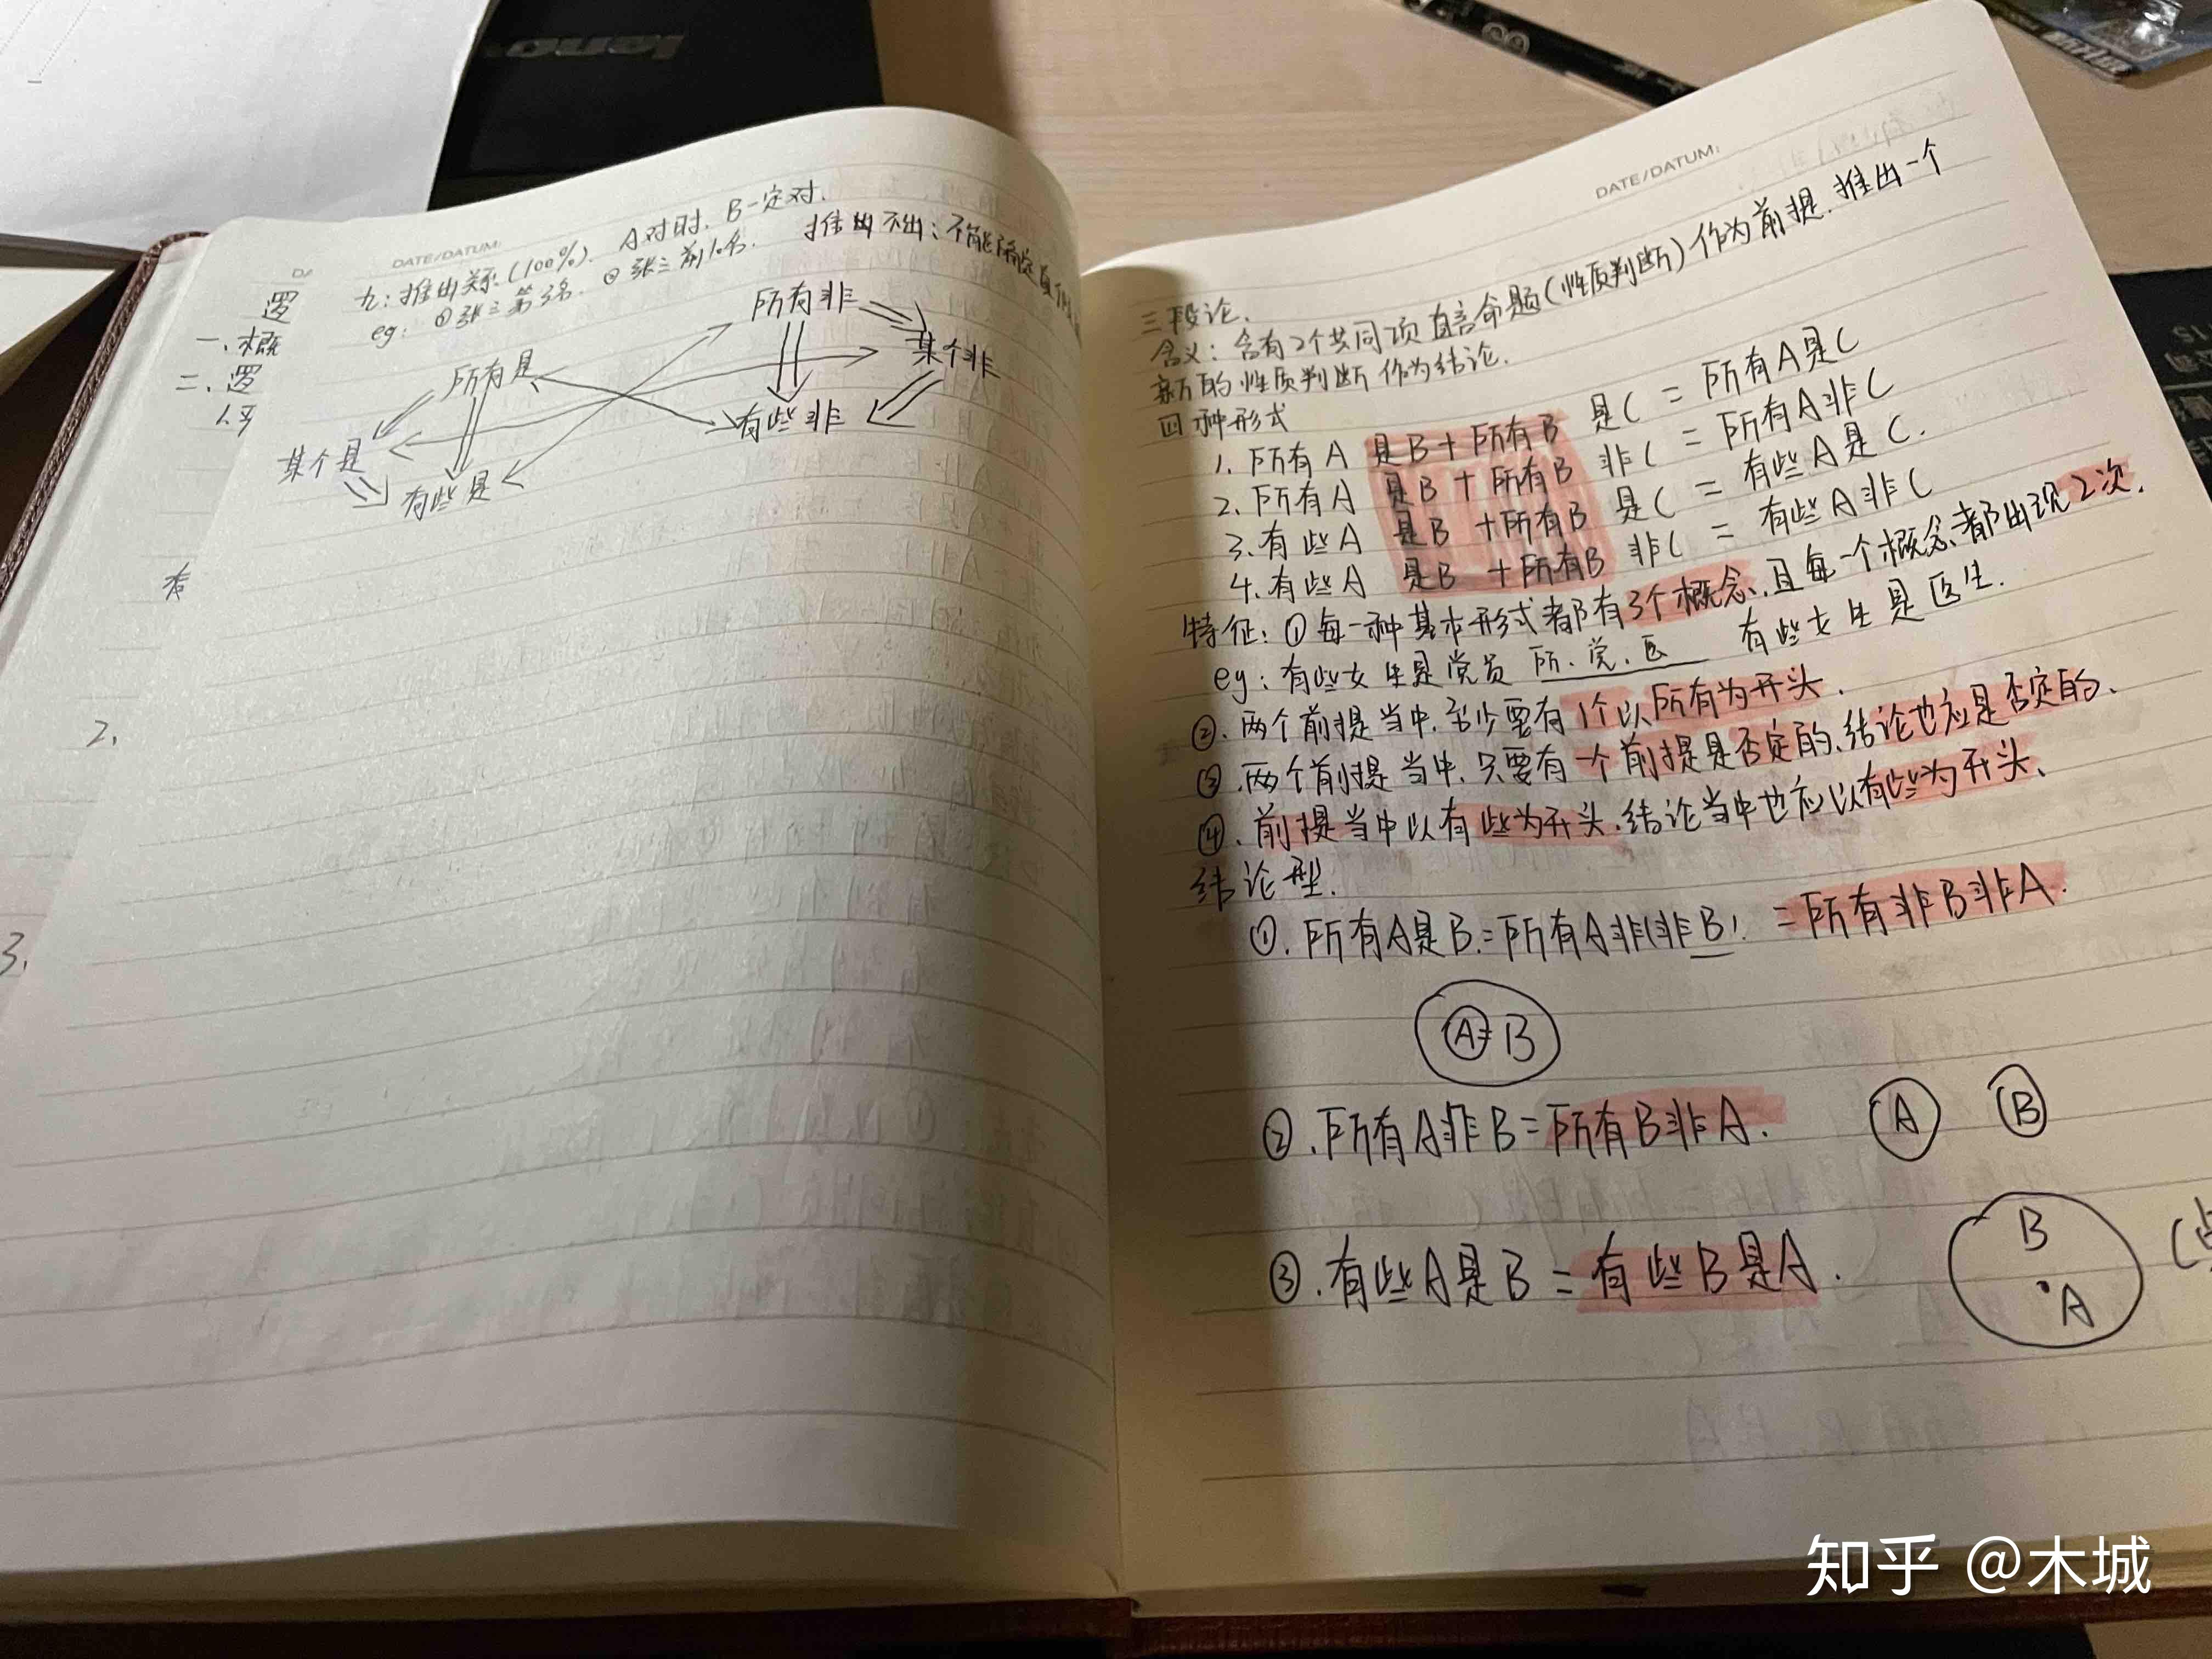 lenovo
DATE/DATUM:
九:推出关系(100%). A对时. B一定对.
eg: ①张三第3名. ②张三前10名. 推出不出:不能确定真
所有非
某个非
所有是
有些非
某个是
有些是
逻
一、概
二、逻
2.
3.
DATE/DATUM:
三段论.
含义:含有2个共同项直言命题(性质判断)作为前提.推出一个
新的性质判断作为结论.
四种形式
1. 所有A 是B+所有B 是C = 所有A是C
2. 所有A 是B+所有B 非C = 所有A非C
3. 有些A 是B +所有B 是C = 有些A是C.
4. 有些A 是B +所有B 非C = 有些A非C
特征: ①每一种基本形式都有3个概念.且每一个概念都出现2次.
eg: 有些女生是党员 所.党.医 有些女生是医生.
②.两个前提当中.至少要有1个以所有为开头.
③.两个前提当中.只要有一个前提是否定的.结论也应是否定的.
④.前提当中以有些为开头.结论当中也应以有些为开头.
结论型.
①.所有A是B.=所有A非(非B). =所有非B非A.
A B
②.所有A非B=所有B非A.
A B
③.有些A是B = 有些B是A.
B
A
知乎 @木城